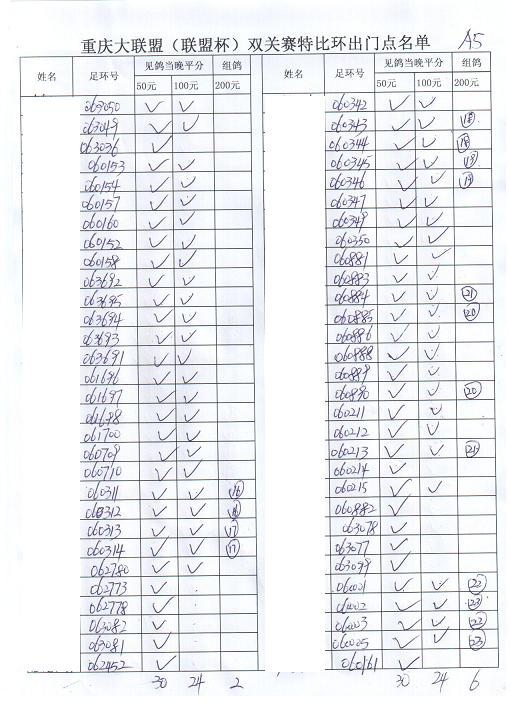 重庆大联盟（联盟杯）双关赛特比环出门点名单 A5
姓名 足环号 见鸽当晚平分 组鸽 姓名 足环号 见鸽当晚平分 组鸽
50元 100元 200元 50元 100元 200元
063050 ✓ ✓ 060342 ✓ ✓
063049 ✓ ✓ 060343 ✓ ✓ ⑱
063036 ✓ 060344 ✓ ✓
060153 ✓ ✓ 060345 ✓ ✓ ⑲
060154 ✓ ✓ 060346 ✓ ✓ ⑲
060157 ✓ ✓ 060347 ✓ ✓
060160 ✓ ✓ 060349 ✓ ✓
060152 ✓ ✓ 060350 ✓ ✓
060158 ✓ ✓ 060881 ✓ ✓
063692 ✓ ✓ 060883 ✓ ✓
063695 ✓ ✓ 060884 ✓ ✓ ㉑
063694 ✓ ✓ 060885 ✓ ✓ ⑳
063693 ✓ ✓ 060886 ✓ ✓
063691 ✓ ✓ 060888 ✓ ✓
061696 ✓ ✓ 060889 ✓ ✓
061697 ✓ ✓ 060890 ✓ ✓ ⑳
061698 ✓ ✓ 060211 ✓ ✓
061700 ✓ ✓ 060212 ✓ ✓
060709 ✓ ✓ 060213 ✓ ✓ ㉑
060710 ✓ ✓ 060214 ✓
060311 ✓ ✓ ⑯ 060215 ✓ ✓
060312 ✓ ✓ 060882 ✓
060313 ✓ ✓ ⑰ 063078 ✓
060314 ✓ ✓ ⑰ 063077 ✓
062780 ✓ 063099 ✓
062773 ✓ 060001 ✓ ✓ ㉒
062778 ✓ 060002 ✓ ✓ ㉓
063082 ✓ 060003 ✓ ✓ ㉒
063081 ✓ 060005 ✓ ✓ ㉓
062452 ✓ 060161 ✓
30 24 2 30 24 6